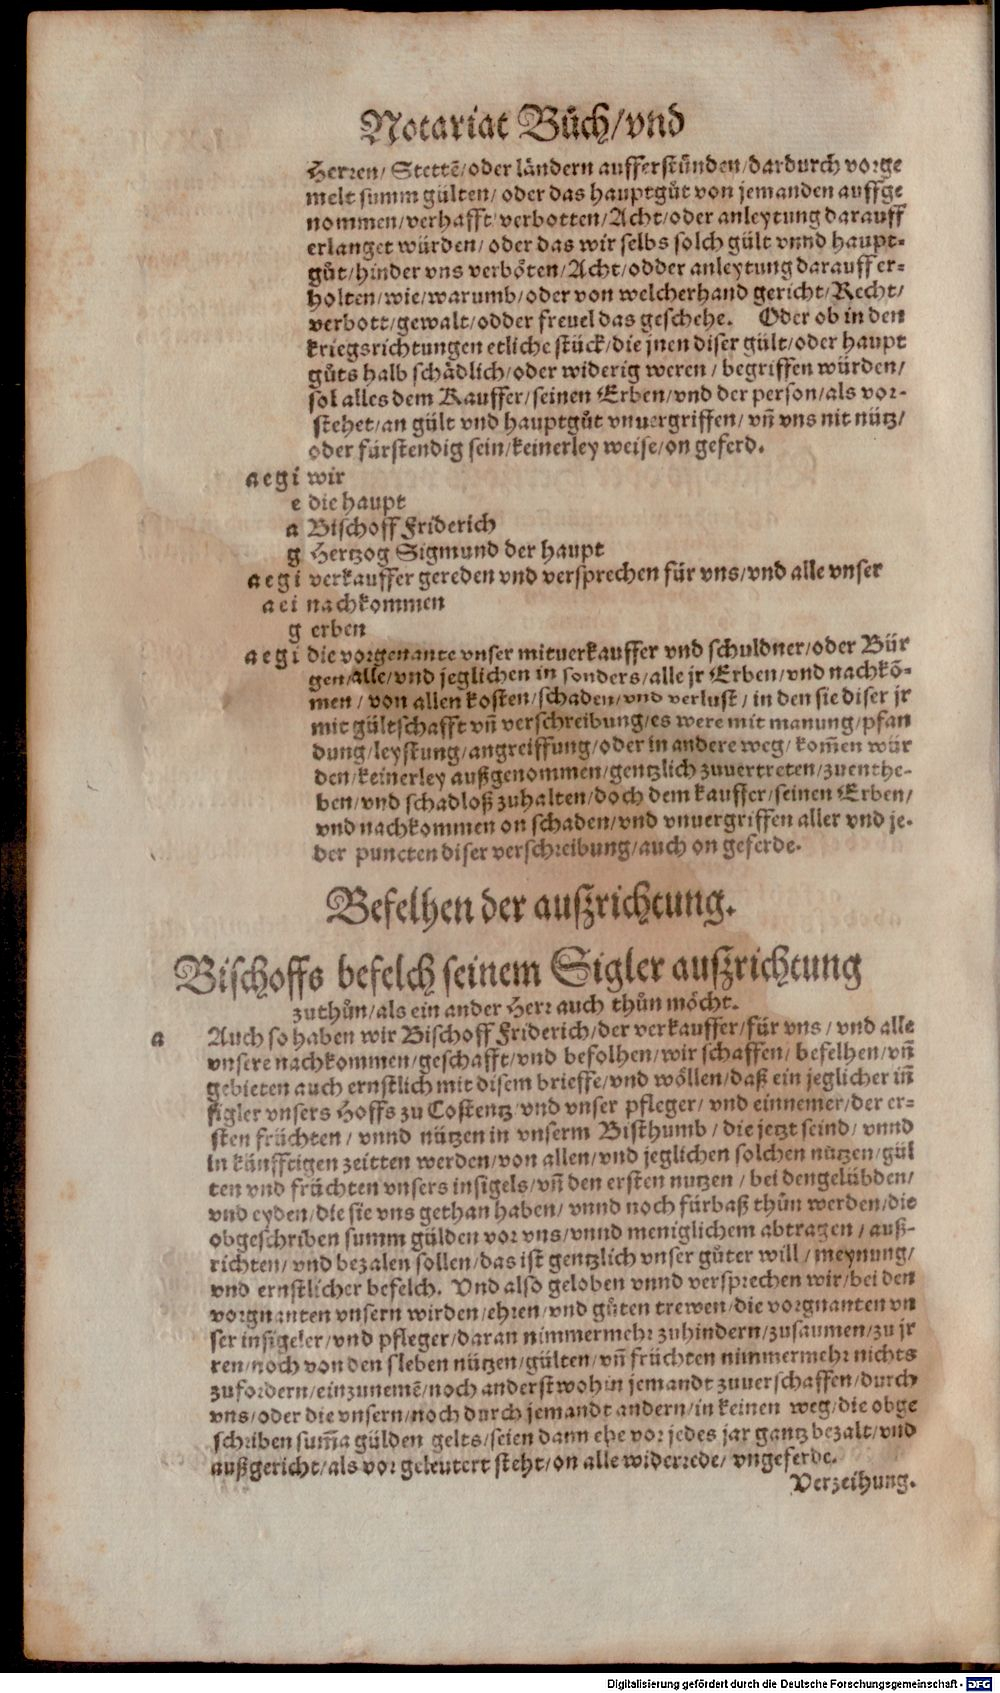 Notariat Bůch/vnd
Herren/ Stettē/oder låndern aufferstůnden/dardurch vorge
melt summ gülten/ oder das hauptgůt von jemanden auffge
nommen/verhafft/verbotten/Acht/oder anleytung darauff
erlanget würden/ oder das wir selbs solch gült vnnd haupt-
gůt/hinder vns verböten/Acht/odder anleytung darauff er-
holten/wie/warumb/oder von welcherhand gericht/Recht/
verbott/gewalt/odder freuel das geschehe. Oder ob in den
kriegsrichtungen etliche stück/die jnen diser gült/oder haupt
gůts halb schådlich/oder widerig weren/ begriffen würden/
sol alles dem Kauffer/seinen Erben/vnd der person/als vor-
stehet/an gült vnd hauptgůt vnuergriffen/ vñ vns nit nütz/
oder fürstendig sein/keinerley weise/on geferd.
a e g i wir
e die haupt
a Bischoff Friderich
g Hertzog Sigmund der haupt
a e g i verkauffer gereden vnd versprechen für vns/vnd alle vnser
a e i nachkommen
g erben
a e g i die vorgenante vnser mituerkauffer vnd schuldner/oder Bür
gen/alle/vnd jeglichen in sonders/alle jr Erben/vnd nachkō-
men/ von allen kosten/schaden/vnd verlust/ in den sie diser jr
mit gültschafft vñ verschreibung/es were mit manung/pfan
dung/leystung/angreiffung/oder in andere weg/ kom̄en wür
den/keinerley außgenommen/gentzlich zuuertreten/zuenthe-
ben/vnd schadloß zuhalten/doch dem kauffer/seinen Erben/
vnd nachkommen on schaden/vnd vnuergriffen aller vnd je-
der puncten diser verschreibung/auch on geferde.
Befelhen der außrichtung.
Bischoffs befelch seinem Sigler außrichtung
zuthůn/als ein ander Herr auch thůn möcht.
a Auch so haben wir Bischoff Friderich/der verkauffer/für vns/ vnd alle
vnsere nachkommen/geschafft/vnd befolhen/wir schaffen/ befelhen/vñ
gebieten auch ernstlich mit disem brieffe/vnd wöllen/daß ein jeglicher in̄
sigler vnsers Hoffs zu Costentz/vnd vnser pfleger/ vnd einnemer/der er-
sten früchten/ vnnd nützen in vnserm Bisthumb/ die jetzt seind/ vnnd
in künfftigen zeitten werden/von allen/vnd jeglichen solchen nützen/gül
ten vnd früchten vnsers insigels/vñ den ersten nutzen/ bei den gelübden/
vnd eyden/die sie vns gethan haben/ vnnd noch fürbaß thůn werden/die
obgeschriben summ gülden vor vns/vnnd meniglichem abtragen/ auß-
richten/ vnd bezalen sollen/das ist gentzlich vnser gůter will/ meynung/
vnd ernstlicher befelch. Vnd also geloben vnnd versprechen wir/bei den
vorgnanten vnsern wirden/ehren/vnd gůten trewen/die vorgnanten vn
ser insigeler/vnd pfleger/daran nimmermehr zuhindern/zusaumen/zu jr
ren/noch von den sleben nützen/gülten/vñ früchten nimmermehr nichts
zufordern/einzunemē/noch anderstwohin jemandt zuuerschaffen/durch
vns/oder die vnsern/noch durch jemandt andern/in keinen weg/die obge
schriben sum̄a gülden gelts/seien dann ehe vor jedes jar gantz bezalt/vnd
außgericht/als vor geleutert steht/on alle widerrede/ vngeferde.
Verzeihung.
Digitalisierung gefördert durch die Deutsche Forschungsgemeinschaft - DFG